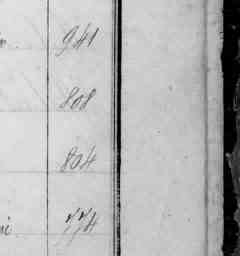 941
808
804
774